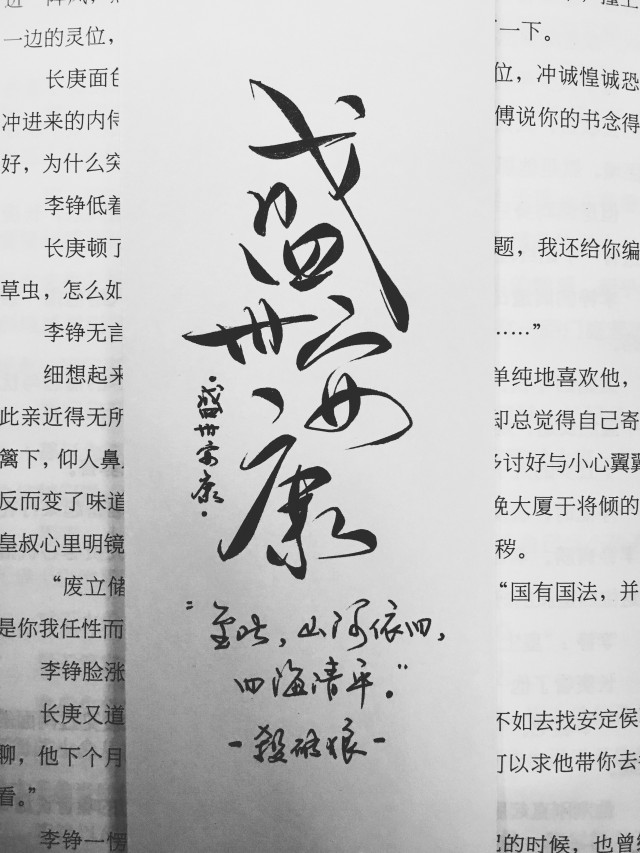 盛世安康
盛世安康
“至此，山河依旧，
四海清平。”
-殺破狼-
一边的灵位，
长庚面色
冲进来的内侍
好，为什么突
李铮低着
长庚顿了
草虫，怎么如
李铮无言
细想起来
此亲近得无所
篱下，仰人鼻
反而变了味道
皇叔心里明镜
“废立储
是你我任性而
李铮脸涨
长庚又道
聊，他下个月
看。”
李铮一愣
撞上
一下。
位，冲诚惶诚恐
傅说你的书念得
题，我还给你编
……”
单纯地喜欢他，
却总觉得自己寄
多讨好与小心翼翼
挽大厦于将倾的
秽。
“国有国法，并
不如去找安定侯
可以求他带你去
的时候，也曾